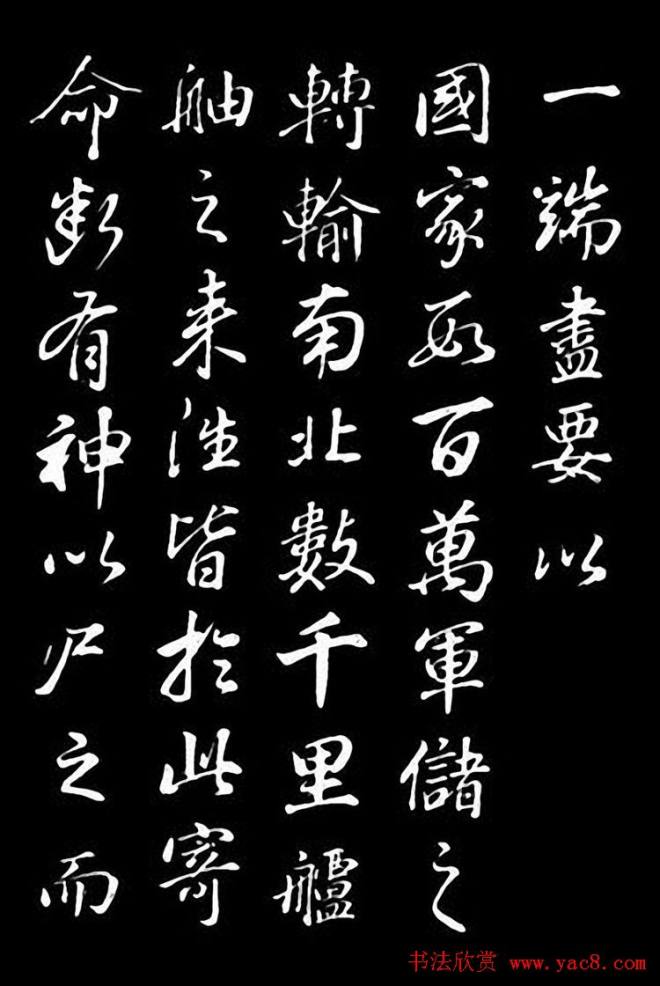 一端盡要以
國家百萬軍儲之
轉輸南北數千里艫
舳之来往皆於此寄
命断有神以尸之而
书法欣赏 www.yac8.com